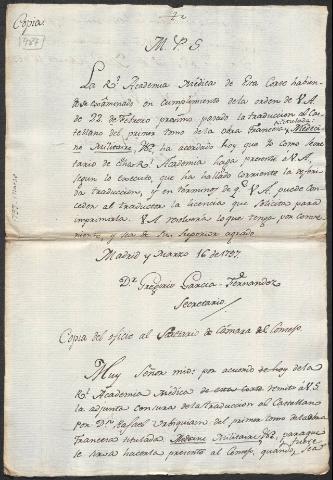 Copia
787
M. P. S.
La Rl. Academia Médica de Esta Corte habien-
do examinado en cumplimiento de la orden de V.A.
de 22 de Febrero próximo pasado la traduccion al Cas-
tellano del primer tomo de la obra Francesa titulada: Médeci-
ne Militaire, &c. ha acordado hoy que Yo como Secre-
tario de dha Rl. Academia haga presente á V.A.
segun lo executo, que ha hallado corriente la referi-
da traduccion, y en terminos de qe. V.A. puede con-
ceder al traductor la licencia que solicita para
imprimirla. V.A. resolverá lo que tenga por conve-
niente, y sea de su Superior agrado.
Madrid y Marzo 16 de 1797.
Dr. Gregorio Garcia Fernandez
Secretario
Copia del oficio al Secretario de Cámara del Consejo.
Muy Señor mio: por acuerdo de hoy de la
Rl. Academia Médica de esta Corte remito á V.S.
la adjunta censura de la traduccion al Castellano
por Dn. Rafael del primer tomo de la obra
Francesa titulada Médecine Militaire &c. para que
se sirva hacerla presente al Consejo, quando